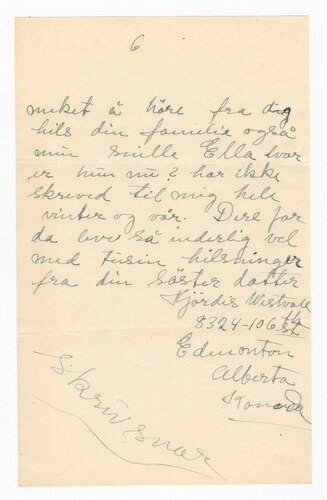 6
meket å höre fra dig
hils din familie også
min snille Ella hvor
er hun nu? har ikke
skreved til mig hele
vinter og vår. Dere får
da leve så inderlig vel
med tusin hilsninger
fra din söster datter
Hjördis Westvold
8324-106 th st
Edmonton
Alberta
Kanada
Skriv snar